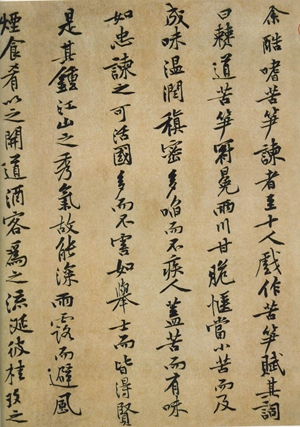 余酷嗜苦笋諫者至十人戲作苦笋賦其詞
曰僰道苦笋冠冕兩川甘脆愜當小苦而及
成味溫潤稹密多啗而不疾人蓋苦而有味
如忠諫之可活國多而不害如舉士而皆得賢
是其鍾江山之秀氣故能深雨露而避風
煙食肴以之開道酒客爲之流涎彼桂玫之